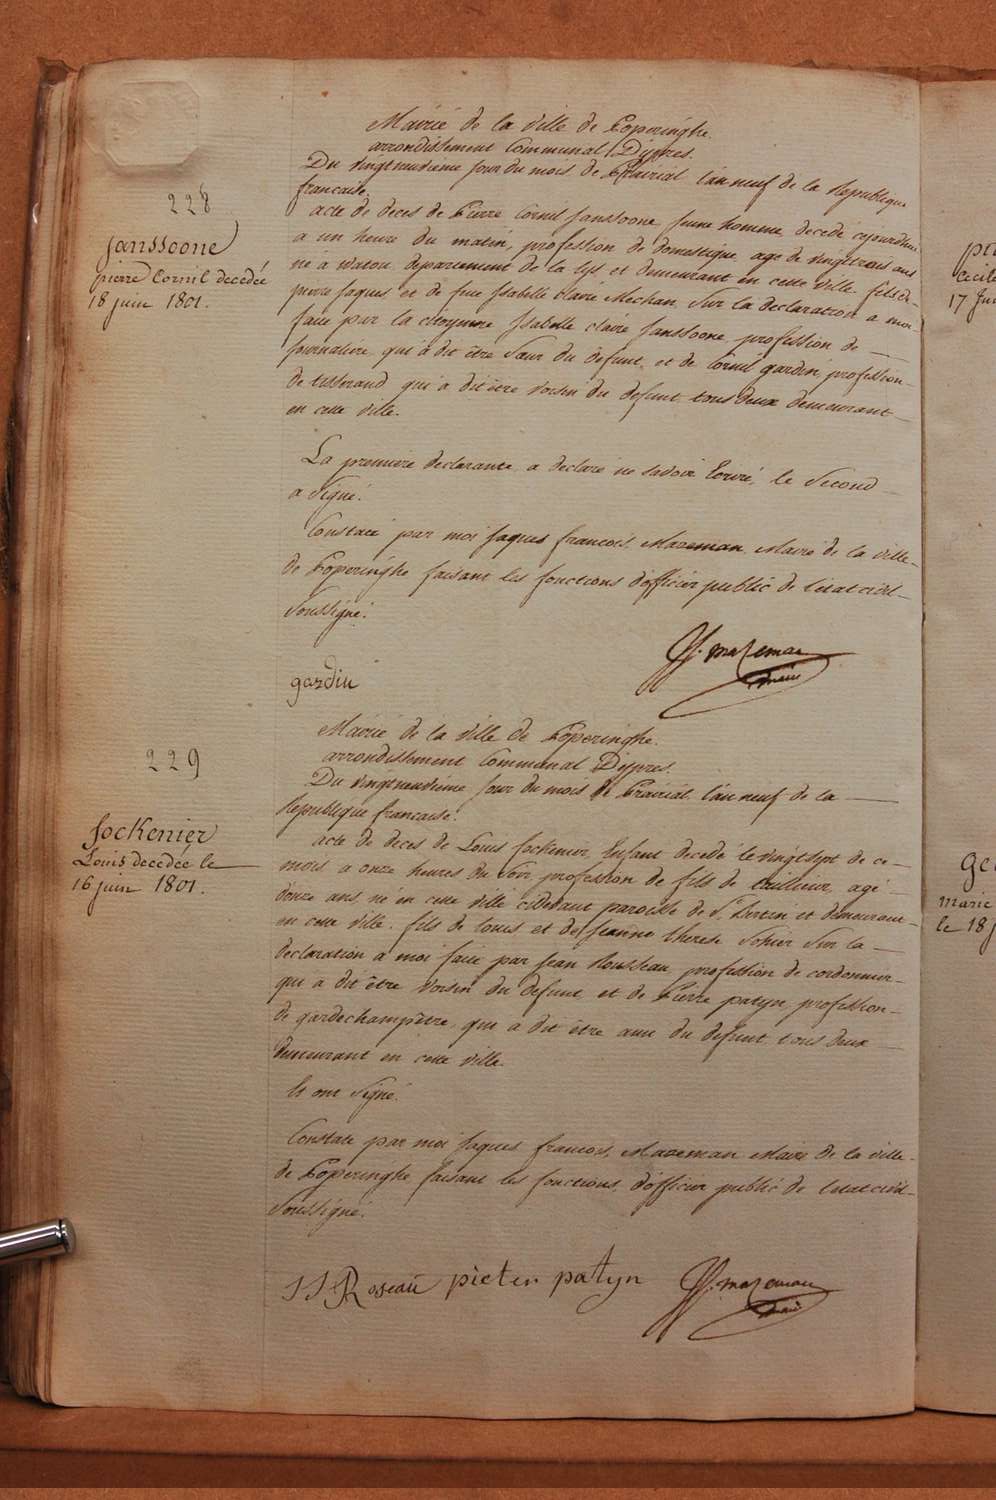 228
Janssoone
pierre Cornil decedée
18 juin 1801.
Mairie de la Ville de Poperinghe.
arrondissement Communal D'ypres.
Du vingtneuvieme jour du mois de Prairial l'an neuf de la Republique
francaise.
acte de deces de Pierre Cornil Janssoone, Jeune homme decedé cejourdhui
a un heure du matin, profession de domestique, agé de vingttrois ans
né a Watou, departement de la Lys, et demeurant en cette Ville. fils de
pierre Jaques, et de feue Isabelle Claire Mechan. Sur la declaration a moi
faite par la citoyenne Isabelle claire Janssoone profession de
Journaliere, qui à dit être Sœur du defunt, et de Cornil gardin, profession
de tisserand qui a dit être voisin du defunt tous deux demeurant
en cette Ville.
La premiere declarante a declaré ne savoir Ecrire, le Second
a Signé.
Constaté par moi Jaques francois Mazeman Maire de la ville
de Poperinghe faisant les fonctions d'officier public de l'etat civil
Soussigné.
J.f. mazeman
maire
gardin
229
Jockenier
Louis decedée le
16 juin 1801.
Mairie de la Ville de Poperinghe.
arrondissement Communal D'ypres.
Du vingtneuvieme jour du mois de Prairial l'an neuf de la
Republique francaise.
acte de deces de Louis Jockenier, Enfant decedé le vingtsept de ce
mois a onze heures du Soir, profession de fils de tailleur, agé
donze ans, né en cette ville cidevant paroisse de St Bertin et demeurant
en cette Ville. fils de Louis et de Jeanne therese Sohier Sur la
declaration a moi faite par Jean Rousseau profession de cordonnier
qui à dit être voisin du defunt, et de Pierre patyn profession
de gardechampêtre, qui a dit être ami du defunt, tous deux
demeurant en cette ville.
Ils ont Signé.
Constaté par moi Jaques francois Mazeman Maire de la ville
de Poperinghe faisant les fonctions d'officier public de l'etat civil
Soussigné.
J J Roseau pieter patyn J.f. mazeman
maire
cecile
17 Jui
marie
le 18 j